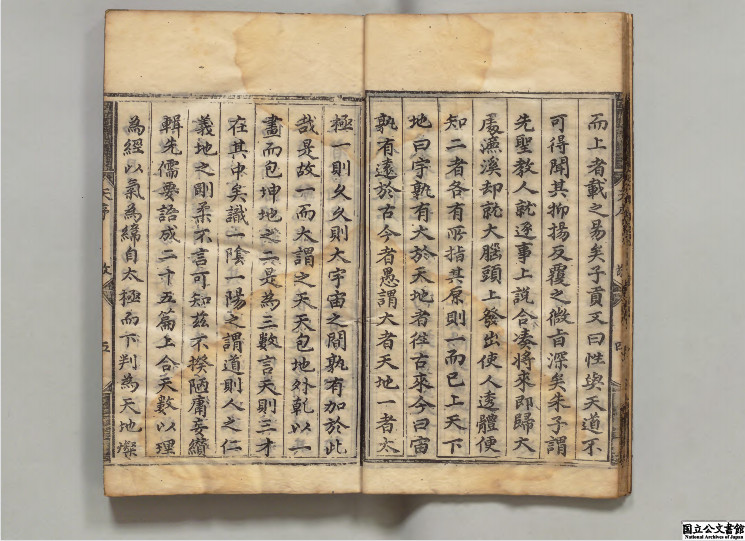 而上者載之易矣子貢又曰性與天道不
可得聞其抑揚反覆之微旨深矣朱子謂
先聖教人就逐事上說合湊將來即歸大
處濂溪却就大腦頭上發出使人透體便
知二者各有所指其原則一而已上天下
地曰宇孰有大於天地者徃古來今曰宙
孰有遠於古今者愚謂大者天地一者太
極一則久久則大宇宙之間孰有加於此
哉是故一而大謂之天天包地外乾以一
畫而包坤地之二是為三數言天則三才
在其中矣識一陰一陽之謂道則人之仁
義地之剛柔不言可知茲不揆陋庸妄纘
輯先儒要語成二十五篇上合天數以理
為經以氣為緯自太極而下判為天地燦
天序
五
国立公文書館
National Archives of Japan